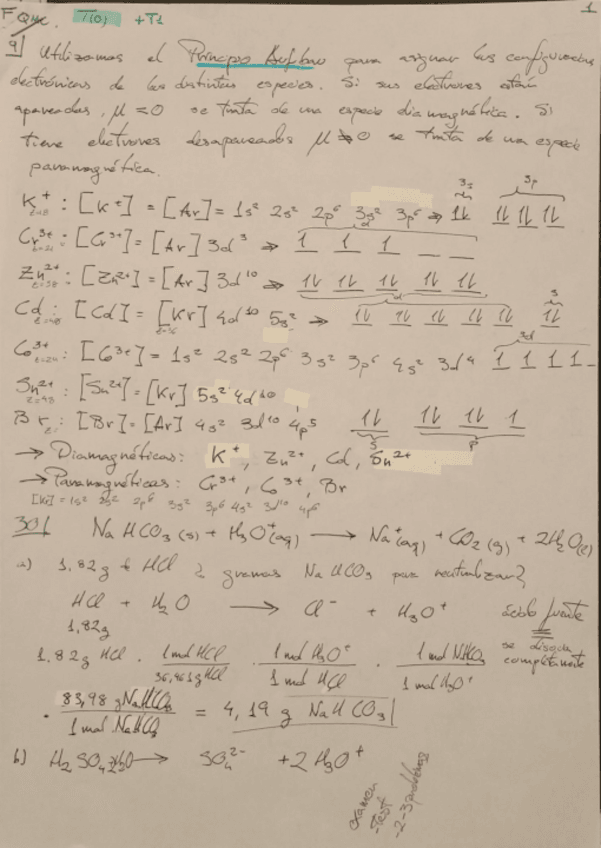 FQMC. T(0) + T1 1
9) Utilizamos el Principio Aufbau para asignar las configuraciones
electrónicas de las distintas especies. Si sus electrones están
apareados, μ = 0 se trata de una especie diamagnética. Si
tiene electrones desapareados μ ≠ 0 se trata de una especie
paramagnética.
3s 3p
K⁺ : [K⁺] = [Ar] = 1s² 2s² 2p⁶ 3s² 3p⁶ ⇒ 1L 1L 1L 1L
Cr³⁺ : [Cr³⁺] = [Ar] 3d³ ⇒ 1 1 1 _ _
d
Zn²⁺ : [Zn²⁺] = [Ar] 3d¹⁰ ⇒ 1L 1L 1L 1L 1L
d s
Cd : [Cd] = [Kr] 4d¹⁰ 5s² ⇒ 1L 1L 1L 1L 1L 1L
z=48 z=36
3d
Co³⁺ : [Co³⁺] = 1s² 2s² 2p⁶ 3s² 3p⁶ 4s² 3d⁴ 1 1 1 1 _
Sn²⁺ : [Sn²⁺] = [Kr] 5s² 4d¹⁰
z=48
Br : [Br] = [Ar] 4s² 3d¹⁰ 4p⁵ 1L 1L 1L 1
s p
→ Diamagnéticas: K⁺, Zn²⁺, Cd, Sn²⁺
→ Paramagnéticas: Cr³⁺, Co³⁺, Br
[Kr] = 1s² 2s² 2p⁶ 3s² 3p⁶ 4s² 3d¹⁰ 4p⁶
30) NaHCO₃ (s) + H₃O⁺(aq) → Na⁺(aq) + CO₂ (g) + 2H₂O(l)
a) 1,82g HCl ¿ gramos NaHCO₃ para neutralizar?
HCl + H₂O → Cl⁻ + H₃O⁺ ácido fuerte
1,82g se disocia completamente
1,82g HCl · 1 mol HCl / 36,461g HCl · 1 mol H₃O⁺ / 1 mol HCl · 1 mol NaHCO₃ / 1 mol H₃O⁺
· 83,98 g NaHCO₃ / 1 mol NaHCO₃ = 4,19 g NaHCO₃
b) H₂SO₄ + 2H₂O → SO₄²⁻ + 2H₃O⁺
examen
-Test
-2-3 problemas